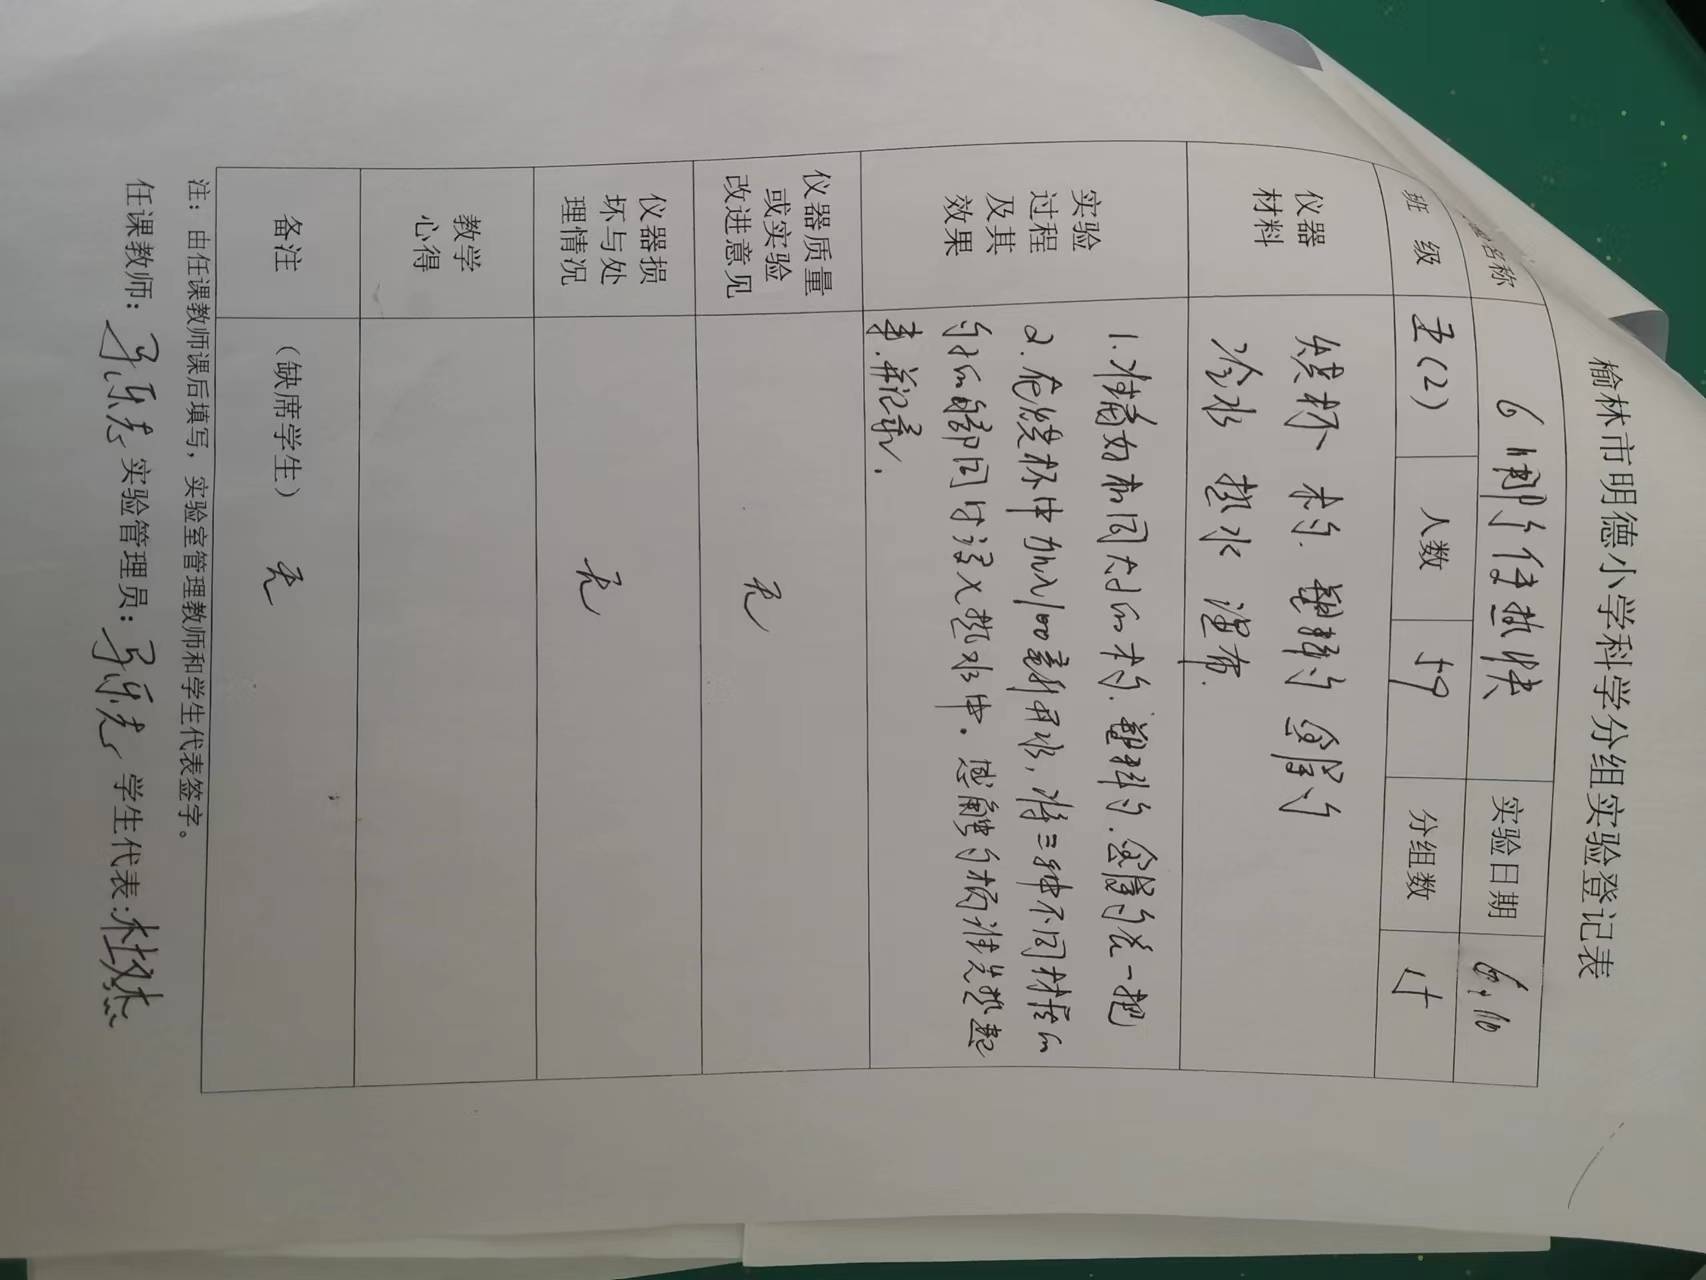 榆林市明德小学科学分组实验登记表
名称 6 哪个传热快 实验日期 6.10
班级 五(2) 人数 59 分组数
仪器材料 烧杯 木勺. 塑料勺 金属勺
冷水 热水 湿布.
实验过程及其效果 1.准备好相同大小的木勺.塑料勺.金属勺各一把
2.在烧杯中加入100毫升开水,将三种不同材质的
勺的脚同时浸入热水中。感触勺柄谁先热起
来.并记录.
仪器质量或实验改进意见 无
仪器损坏与处理情况 无
教学心得
备注 (缺席学生) 无
注:由任课教师课后填写,实验室管理教师和学生代表签字。
任课教师: 实验管理员: 学生代表:杜